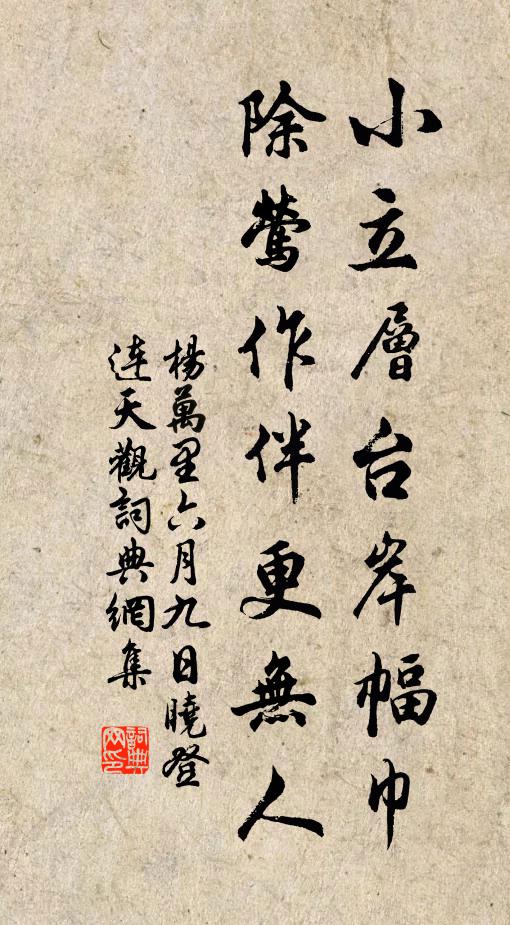 小立層台岸幅巾
除鶯作伴更無人
楊萬里六月九日曉登
连天觀詞典網集
詞典
网印